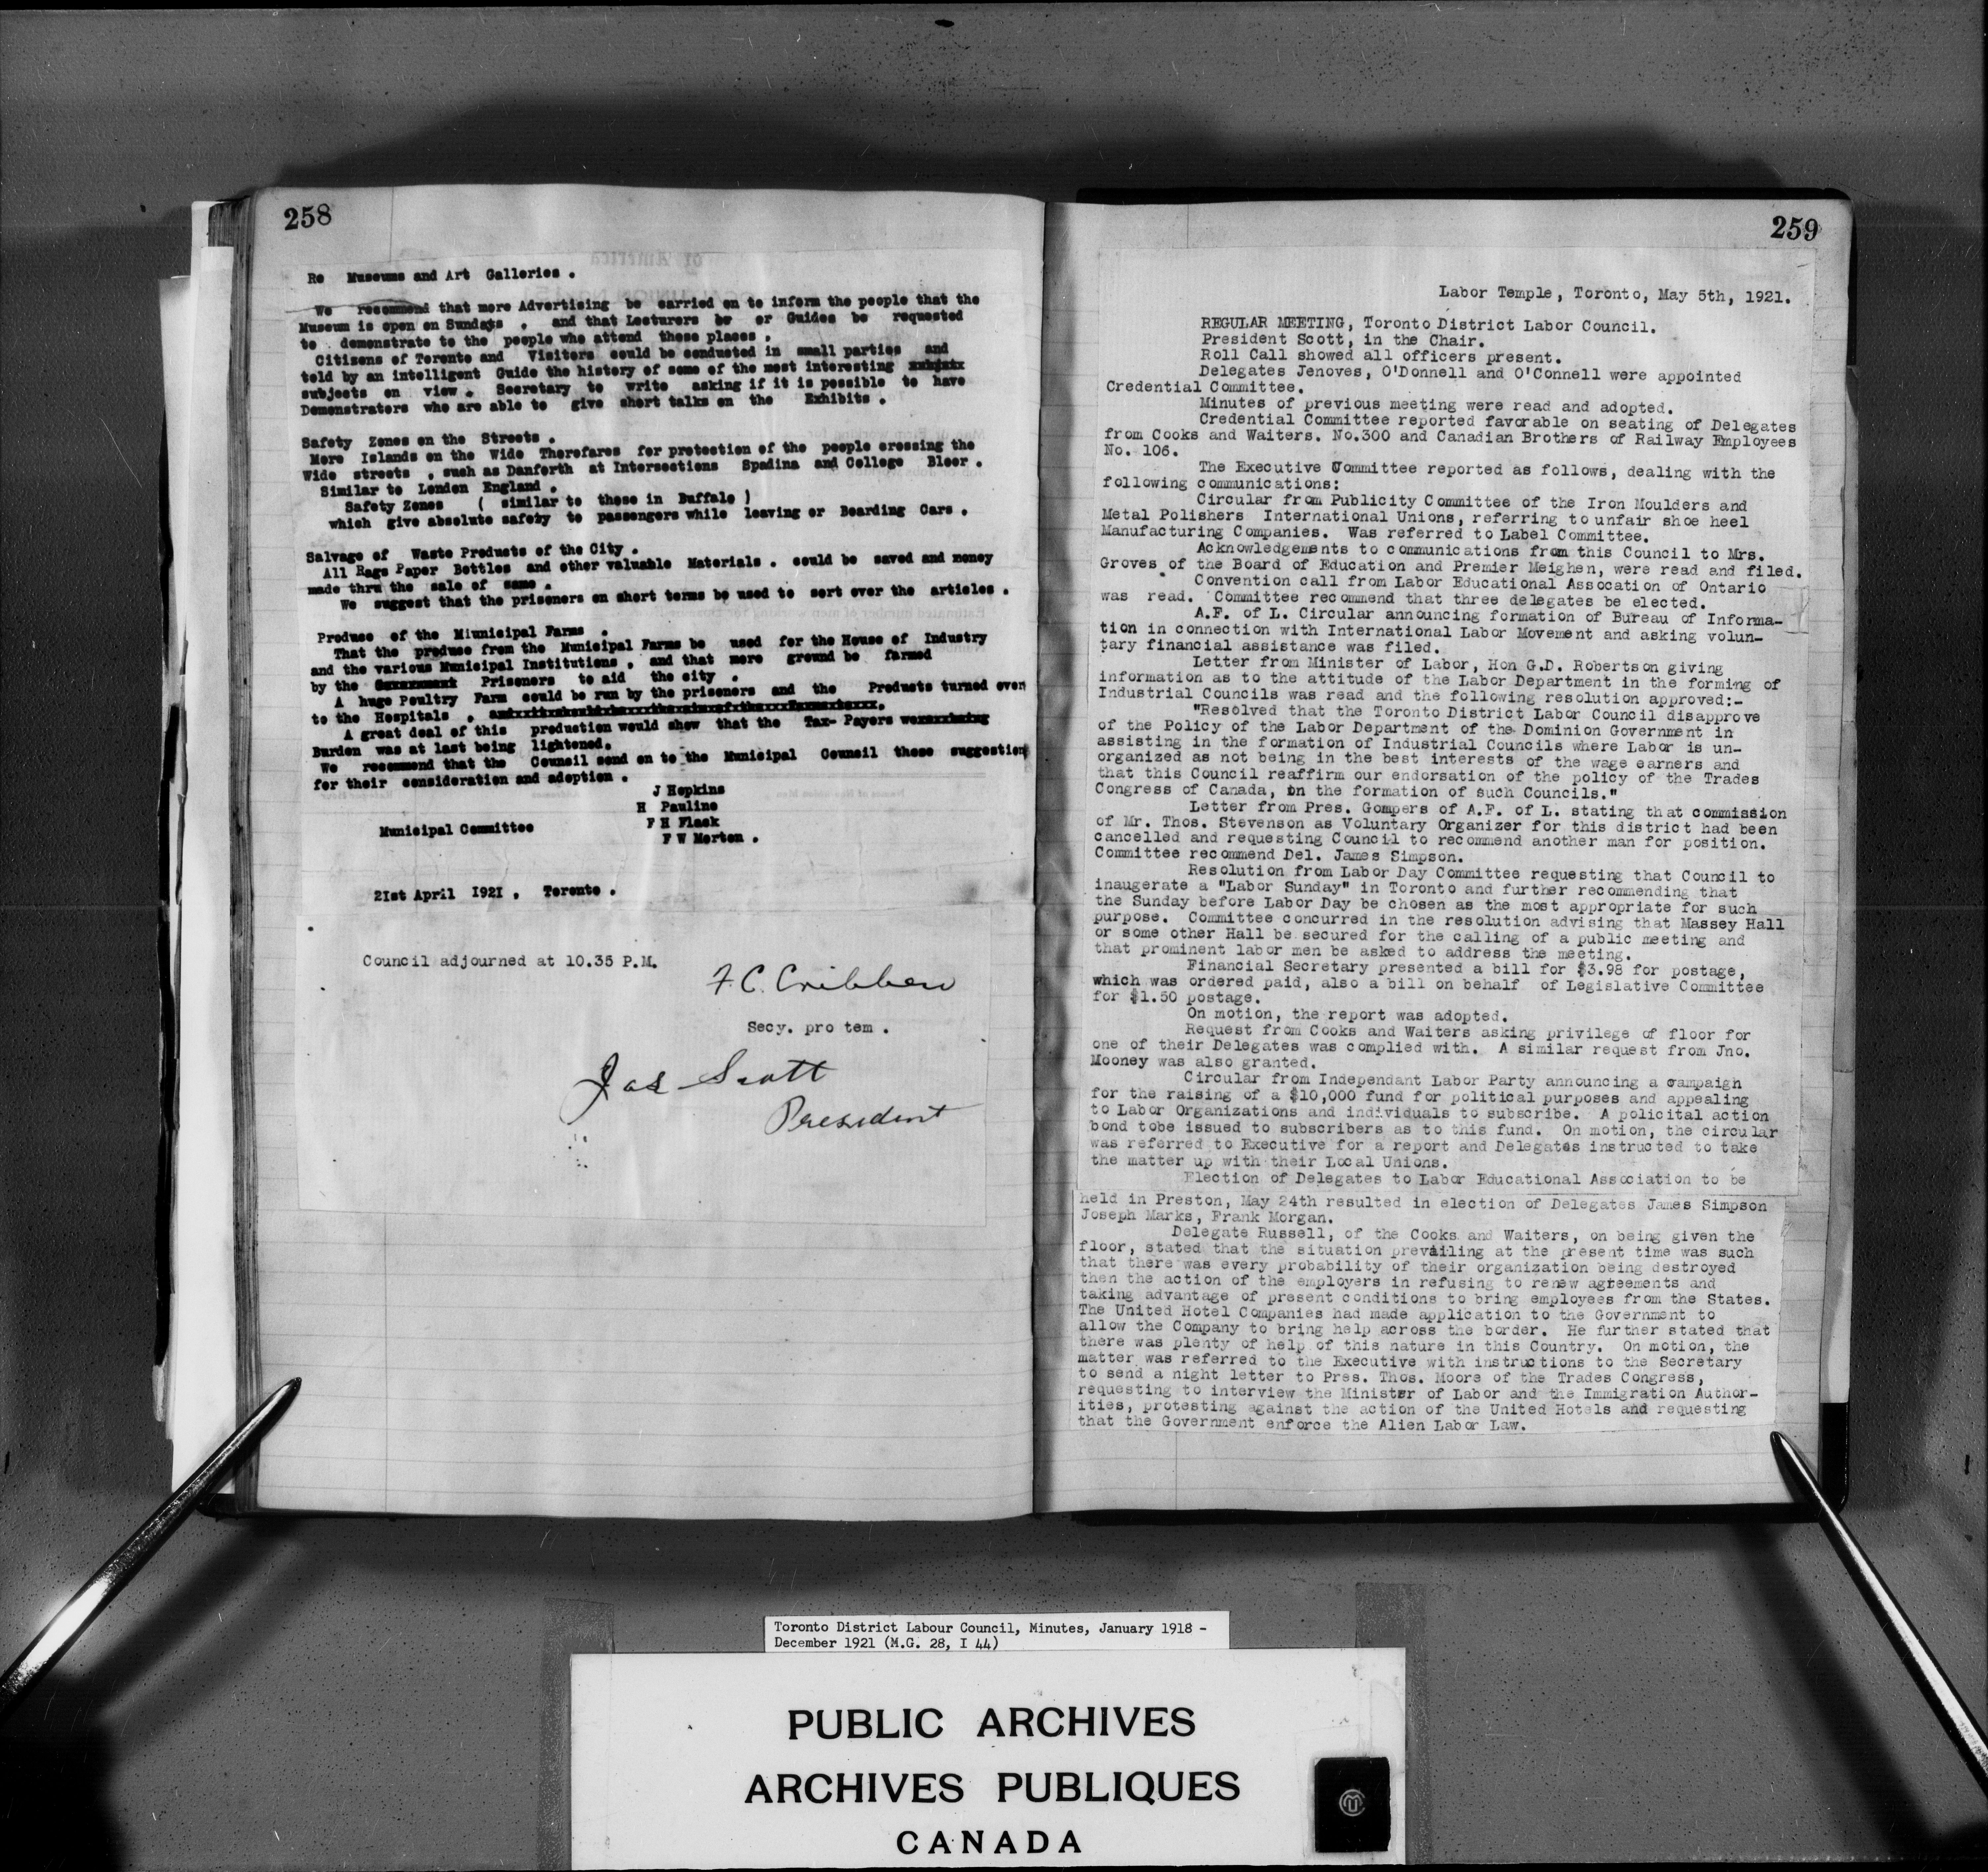 258
Re Museums and Art Galleries .
We recommend that more Advertising be carried on to inform the people that the
Museum is open on Sundays . and that Lecturers or Guides be requested
to demonstrate to the people who attend these places .
Citizens of Toronto and Visitors could be conducted in small parties and
told by an intelligent Guide the history of some of the most interesting
subjects on view . Secretary to write asking if it is possible to have
Demonstrators who are able to give short talks on the Exhibits .
Safety Zones on the Streets .
More Islands on the Wide Thorofares for protection of the people crossing the
Wide streets , such as Danforth at Intersections Spadina and College Bloor .
Similar to London England .
Safety Zones ( similar to those in Buffalo )
which give absolute safety to passengers while leaving or Boarding Cars .
Salvage of Waste Products of the City .
All Rags Paper Bottles and other valuable Materials . could be saved and money
made thru the sale of same .
We suggest that the prisoners on short terms be used to sort over the articles .
Produse of the Miunicipal Farms .
That the produse from the Municipal Farms be used for the House of Industry
and the various Municipal Institutions , and that more ground be farmed
by the Prisoners to aid the city .
A huge Poultry Farm could be run by the prisoners and the Products turned over
to the Hospitals .
A great deal of this production would show that the Tax- Payers
Burden was at last being lightened.
We recommend that the Council send on to the Municipal Council these suggestions
for their consideration and adoption .
J Hopkins
H Pauline
F H Flack
Municipal Committee
F W Morton .
2Ist April I92I . Toronto .
Council adjourned at 10.35 P.M.
F.C. Cribben
Secy. pro tem .
Jas Scott
President
259
Labor Temple, Toronto, May 5th, 1921.
REGULAR MEETING, Toronto District Labor Council.
President Scott, in the Chair.
Roll Call showed all officers present.
Delegates Jenoves, O'Donnell and O'Connell were appointed
Credential Committee.
Minutes of previous meeting were read and adopted.
Credential Committee reported favorable on seating of Delegates
from Cooks and Waiters. No.300 and Canadian Brothers of Railway Employees
No. 106.
The Executive Committee reported as follows, dealing with the
following communications:
Circular from Publicity Committee of the Iron Moulders and
Metal Polishers International Unions, referring to unfair shoe heel
Manufacturing Companies. Was referred to Label Committee.
Acknowledgements to communications from this Council to Mrs.
Groves of the Board of Education and Premier Meighen, were read and filed.
Convention call from Labor Educational Assocation of Ontario
was read. Committee recommend that three delegates be elected.
A.F. of L. Circular announcing formation of Bureau of Informa-
tion in connection with International Labor Movement and asking volun-
tary financial assistance was filed.
Letter from Minister of Labor, Hon G.D. Robertson giving
information as to the attitude of the Labor Department in the forming of
Industrial Councils was read and the following resolution approved:-
"Resolved that the Toronto District Labor Council disapprove
of the Policy of the Labor Department of the Dominion Government in
assisting in the formation of Industrial Councils where Labor is un-
organized as not being in the best interests of the wage earners and
that this Council reaffirm our endorsation of the policy of the Trades
Congress of Canada, on the formation of such Councils."
Letter from Pres. Gompers of A.F. of L. stating that commission
of Mr. Thos. Stevenson as Voluntary Organizer for this district had been
cancelled and requesting Council to recommend another man for position.
Committee recommend Del. James Simpson.
Resolution from Labor Day Committee requesting that Council to
inaugerate a "Labor Sunday" in Toronto and further recommending that
the Sunday before Labor Day be chosen as the most appropriate for such
purpose. Committee concurred in the resolution advising that Massey Hall
or some other Hall be secured for the calling of a public meeting and
that prominent labor men be asked to address the meeting.
Financial Secretary presented a bill for $3.98 for postage,
which was ordered paid, also a bill on behalf of Legislative Committee
for $1.50 postage.
On motion, the report was adopted.
Request from Cooks and Waiters asking privilege of floor for
one of their Delegates was complied with. A similar request from Jno.
Mooney was also granted.
Circular from Independant Labor Party announcing a campaign
for the raising of a $10,000 fund for political purposes and appealing
to Labor Organizations and individuals to subscribe. A policital action
bond tobe issued to subscribers as to this fund. On motion, the circular
was referred to Executive for a report and Delegates instructed to take
the matter up with their Local Unions.
Election of Delegates to Labor Educational Association to be
held in Preston, May 24th resulted in election of Delegates James Simpson
Joseph Marks, Frank Morgan.
Delegate Russell, of the Cooks and Waiters, on being given the
floor, stated that the situation prevailing at the present time was such
that there was every probability of their organization being destroyed
then the action of the employers in refusing to renew agreements and
taking advantage of present conditions to bring employees from the States.
The United Hotel Companies had made application to the Government to
allow the Company to bring help across the border. He further stated that
there was plenty of help of this nature in this Country. On motion, the
matter was referred to the Executive with instructions to the Secretary
to send a night letter to Pres. Thos. Moore of the Trades Congress,
requesting to interview the Minister of Labor and the Immigration Author-
ities, protesting against the action of the United Hotels and requesting
that the Government enforce the Alien Labor Law.
Toronto District Labour Council, Minutes, January 1918 -
December 1921 (M.G. 28, I 44)
PUBLIC ARCHIVES
ARCHIVES PUBLIQUES
CANADA